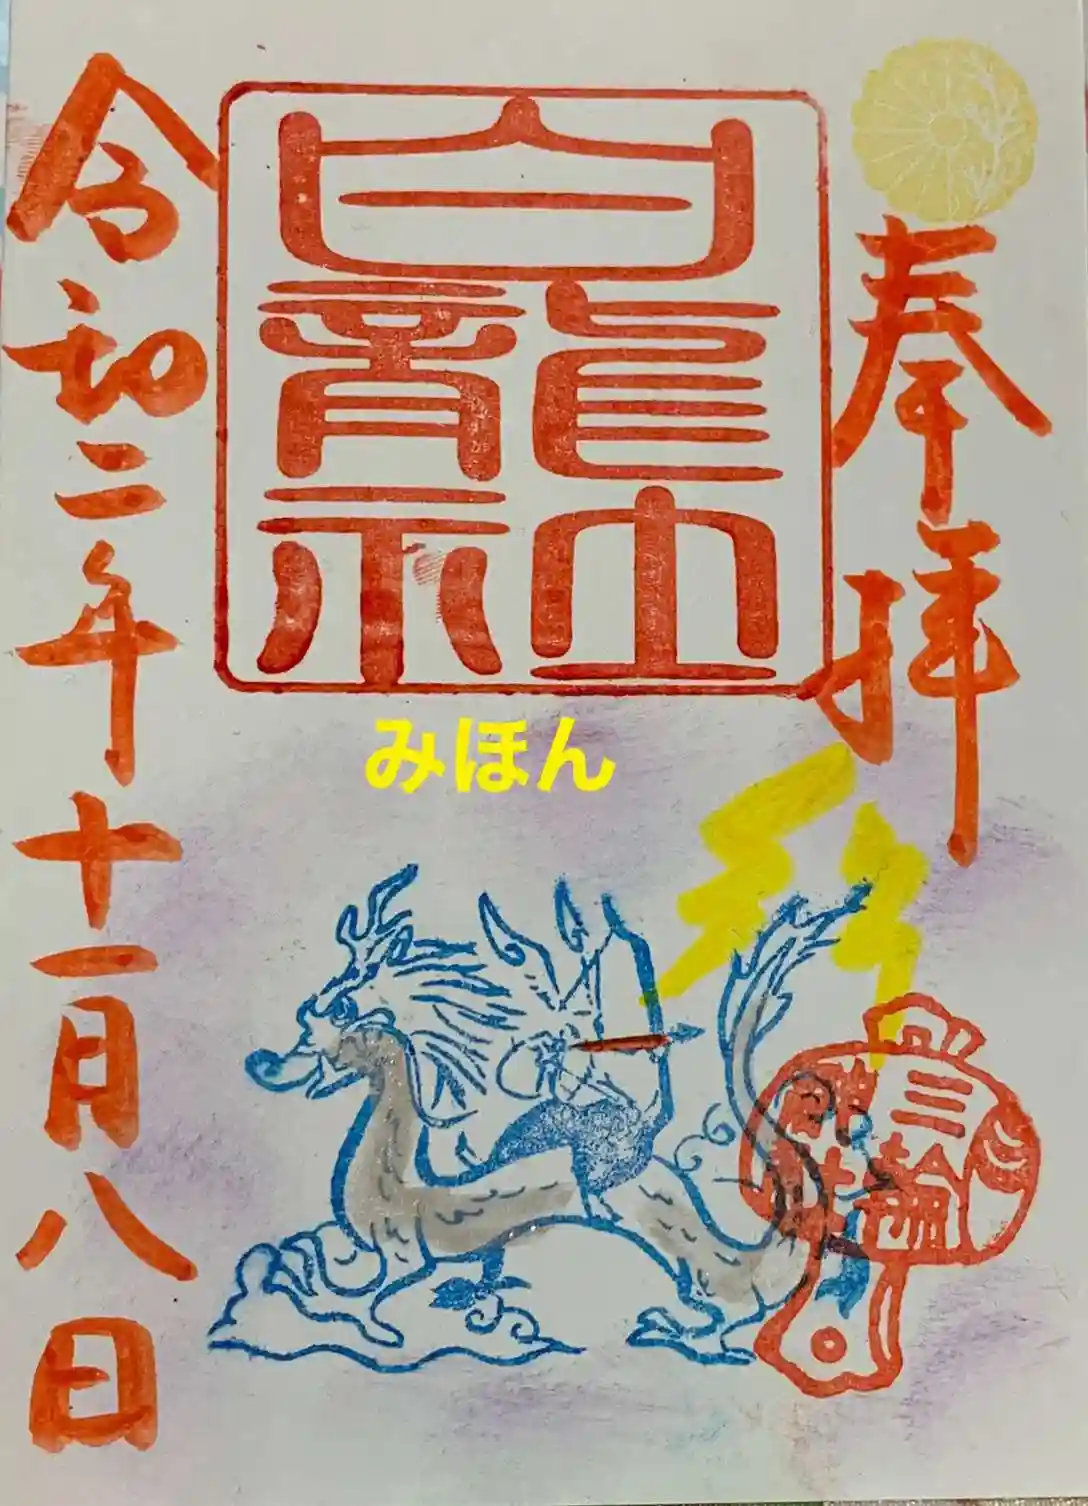 奉拝
白龍社
みほん
三輪神社
令和二年十一月八日